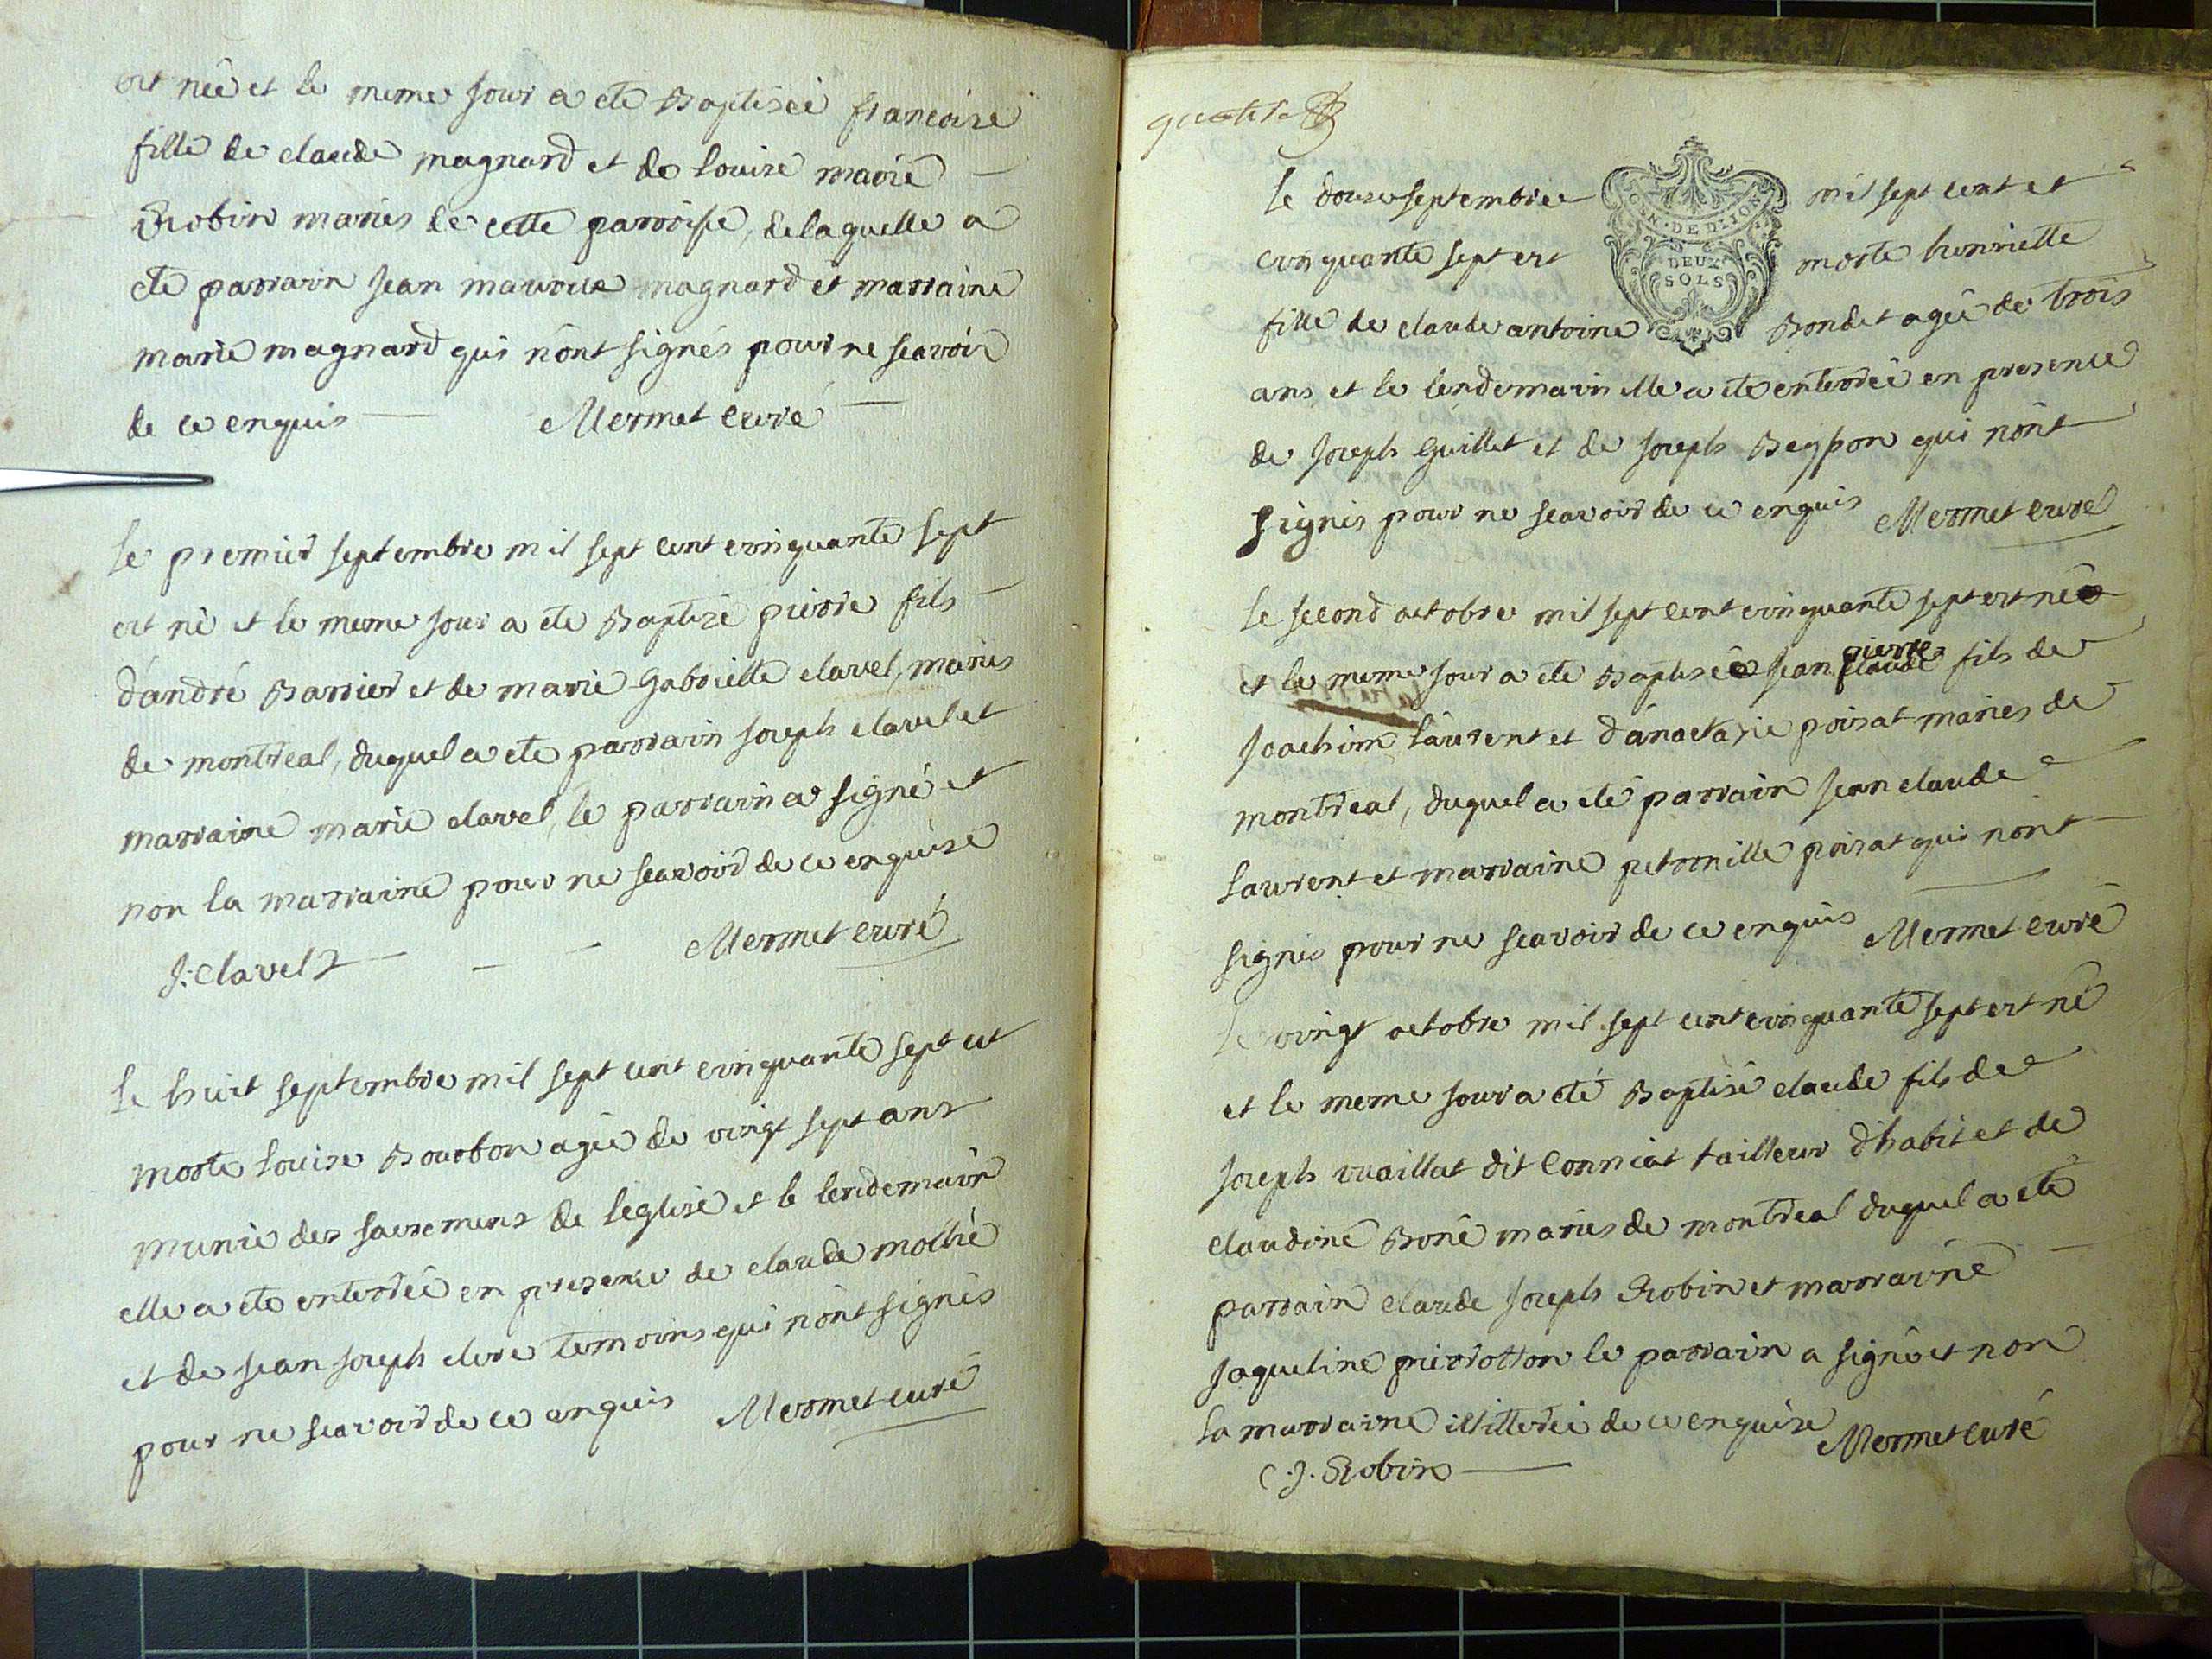 est née et le meme jour a ete Baptiseé francoise
fille de claude magnard et de louise marie
Robin mariés de cette parroisse, delaquelle a
ete parrain jean maurice magnard et marraine
marie magnard qui n'ont signés pour ne scavoir
de ce enquis Mermet curé
le premier septembre mil sept cent cinquante sept
est né et le meme jour a ete Baptisé pierre fils
d'andré Barrier et de marie Gabrielle clavel, mariés
de montreal, duquel a ete parrain joseph clavel et
marraine marie clavel, le parrain a signé et
non la marraine pour ne scavoir de ce enquise
J: Clavel Mermet curé
le huit septembre mil sept cent cinquante sept est
morte louise Bourbon agée de vingt sept ans
munie des sacremens de l'eglise et le lendemain
elle a ete enterrée en presence de claude mollié
et de jean joseph clere temoins qui n'ont signés
pour ne scavoir de ce enquis Mermet curé
quatre
le douze septembre mil sept cent et
GEN. DE DIJON
DEUX
SOLS
cinquante sept est morte henriette
fille de claude antoine Bondet agée de trois
ans et le lendemain elle a ete enterrée en presence
de joseph Guillet et de joseph qui n'ont
signés pour ne scavoir de ce enquis Mermet curé
le second octobre mil sept cent cinquante sept est né
et le meme jour a ete Baptisé jean pierre claude fils de
joachim laurent et d'anastasie poisat mariés de
montreal, duquel a eté parrain jean claude
laurent et marraine petronille poisat qui n'ont
signés pour ne scavoir de ce enquis Mermet curé
le vingt octobre mil sept cent cinquante sept est né
et le meme jour a eté Baptisé claude fils de
joseph vuaillat dit Conniat tailleur d'habit et de
claudine Boné mariés de montreal duquel a ete
parrain claude joseph Robin et marraine
jaqueline pierrotton le parrain a signé et non
la marraine illitterée de ce enquise Mermet curé
C. J. Robin